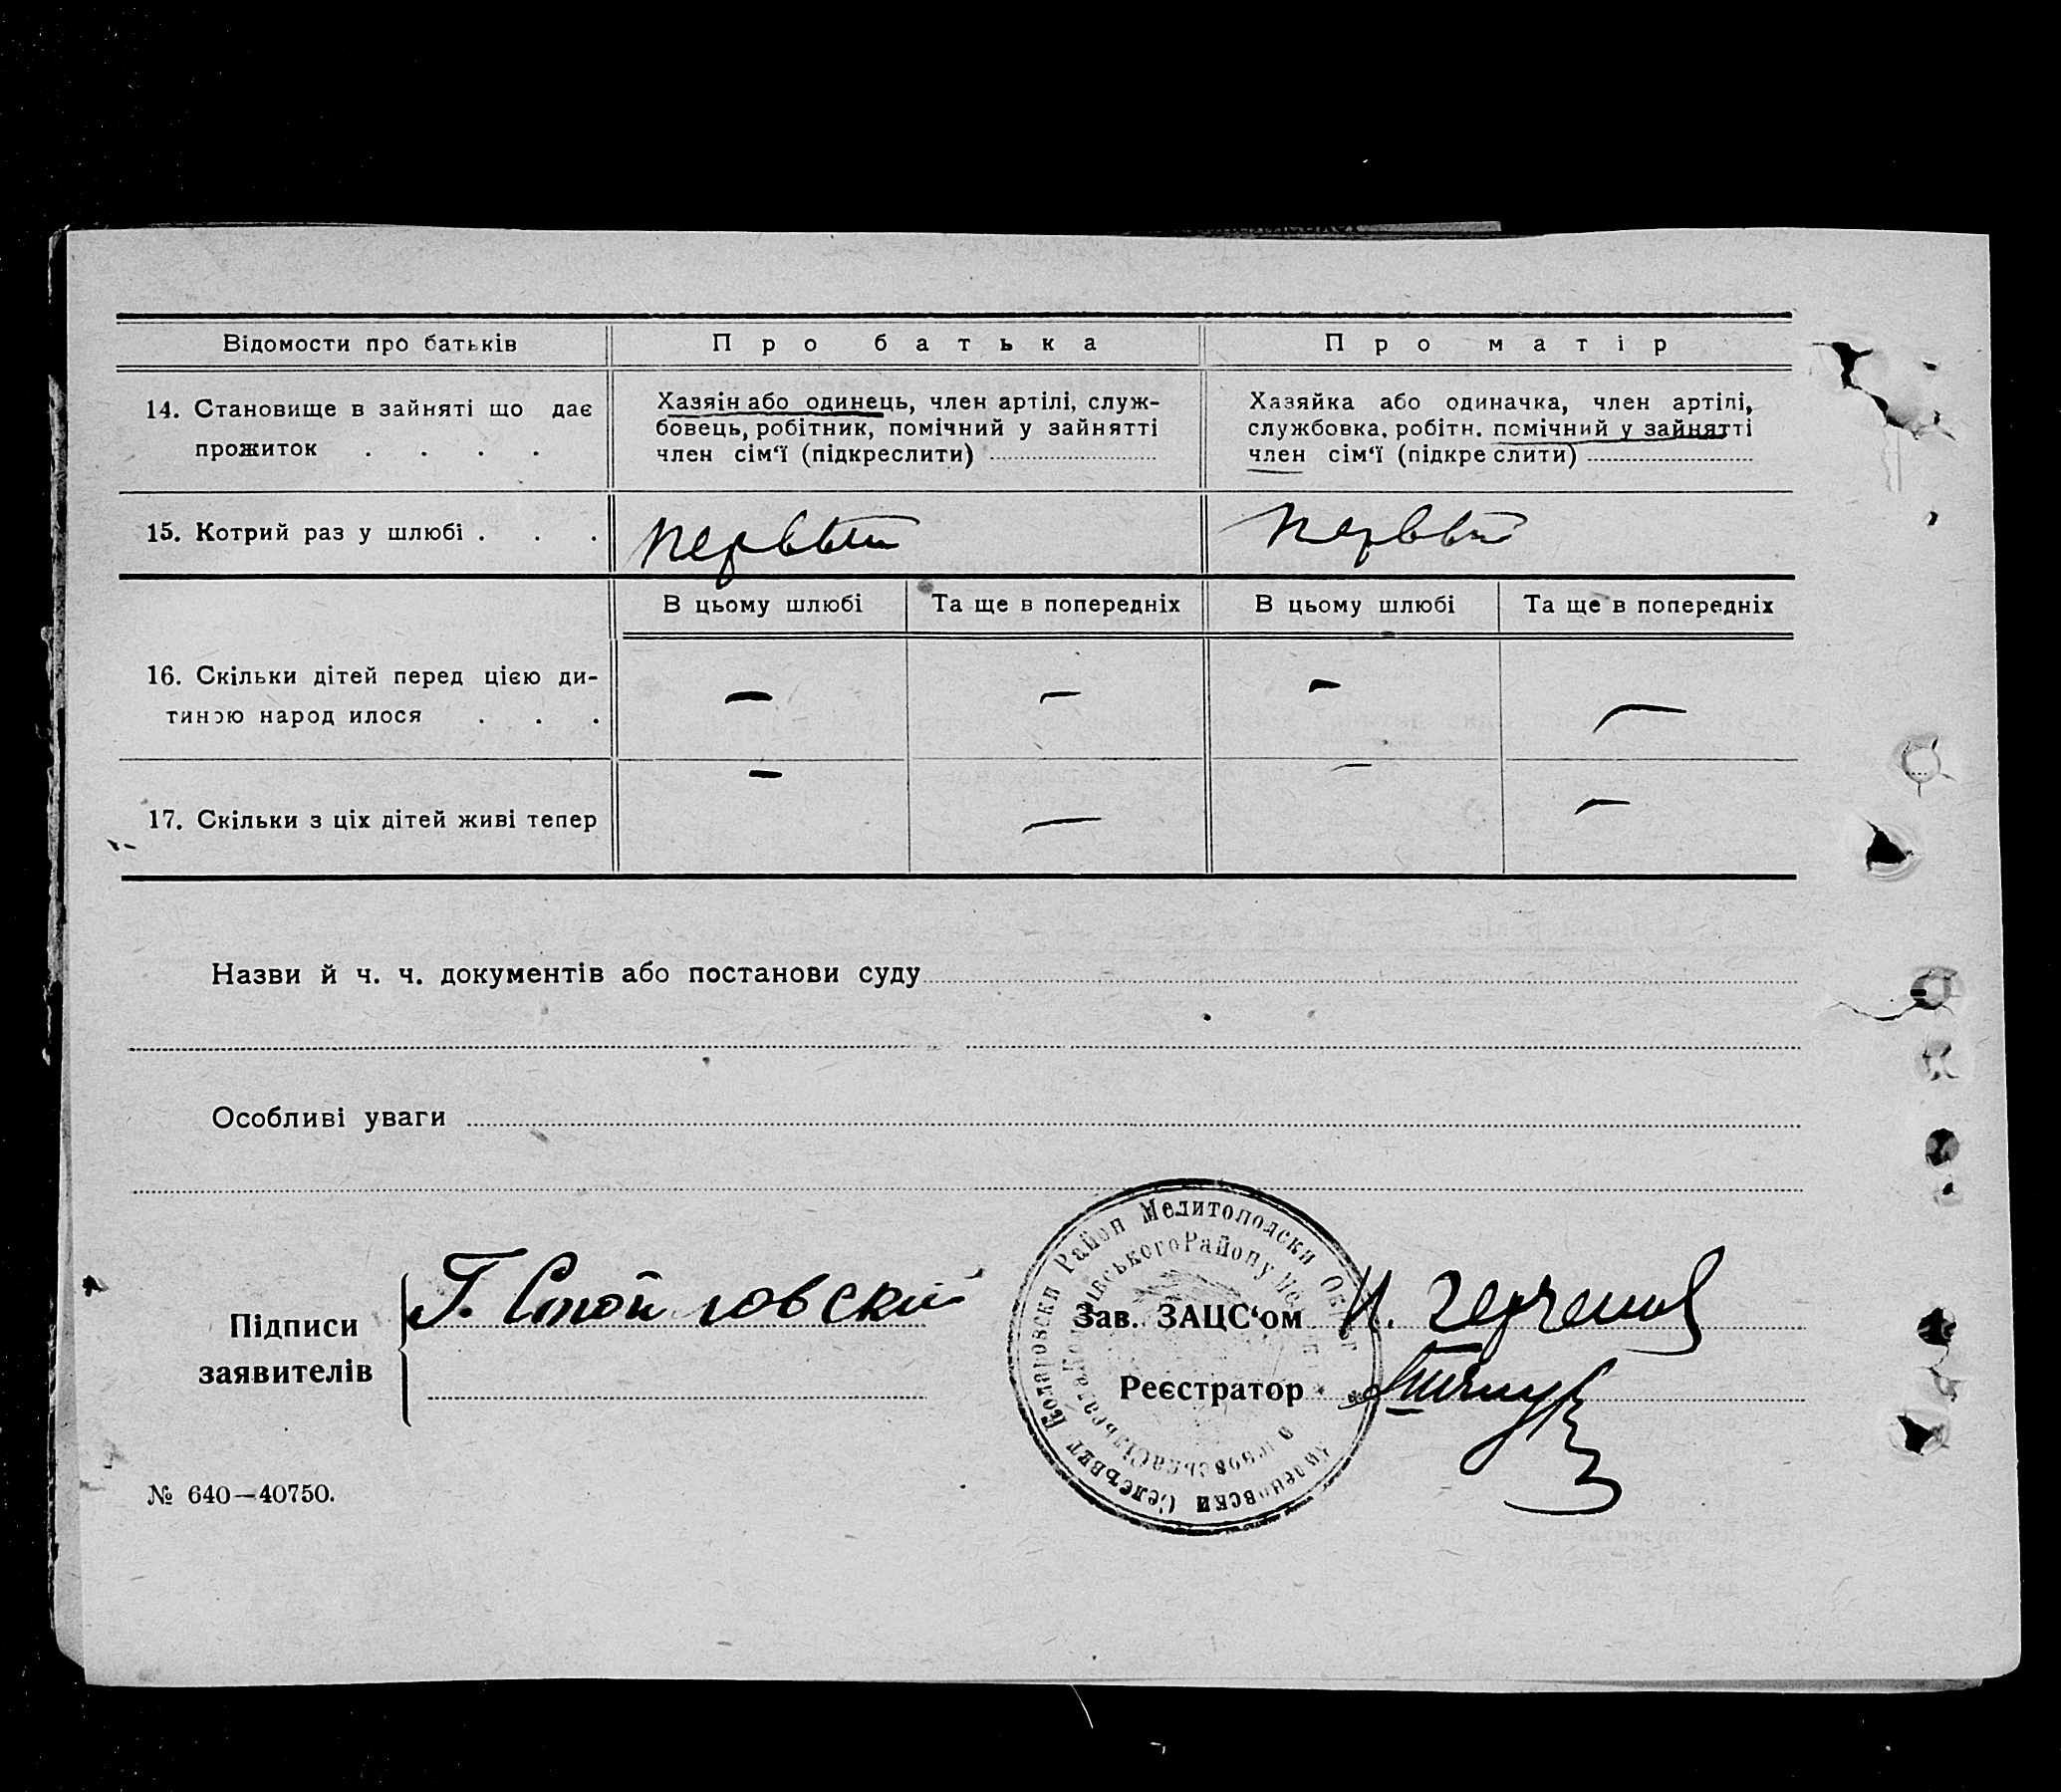 Відомости про батьків
Про батька
Про матір
14. Становище в зайняті що дає
прожиток . . . .
Хазяін або одинець, член артілі, служ-
бовець, робітник, помічний у зайнятті
член сім‘ї (підкреслити)
Хазяйка або одиначка, член артілі,
службовка, робітн. помічний у зайнятті
член сім‘ї (підкре слити)
15. Котрий раз у шлюбі . . .
первый
первый
В цьому шлюбі
Та ще в попередніх
В цьому шлюбі
Та ще в попередніх
16. Скільки дітей перед цією ди-
тиною народ илося . . .
—
—
—
—
17. Скільки з ціх дітей живі тепер
—
—
—
—
Назви й ч. ч. документів або постанови суду
Особливі уваги
Підписи
заявителів
Г. Стойловский
Район Мелитополски
Району
Зав. ЗАЦС‘ом И.
Реєстратор
№ 640—40750.